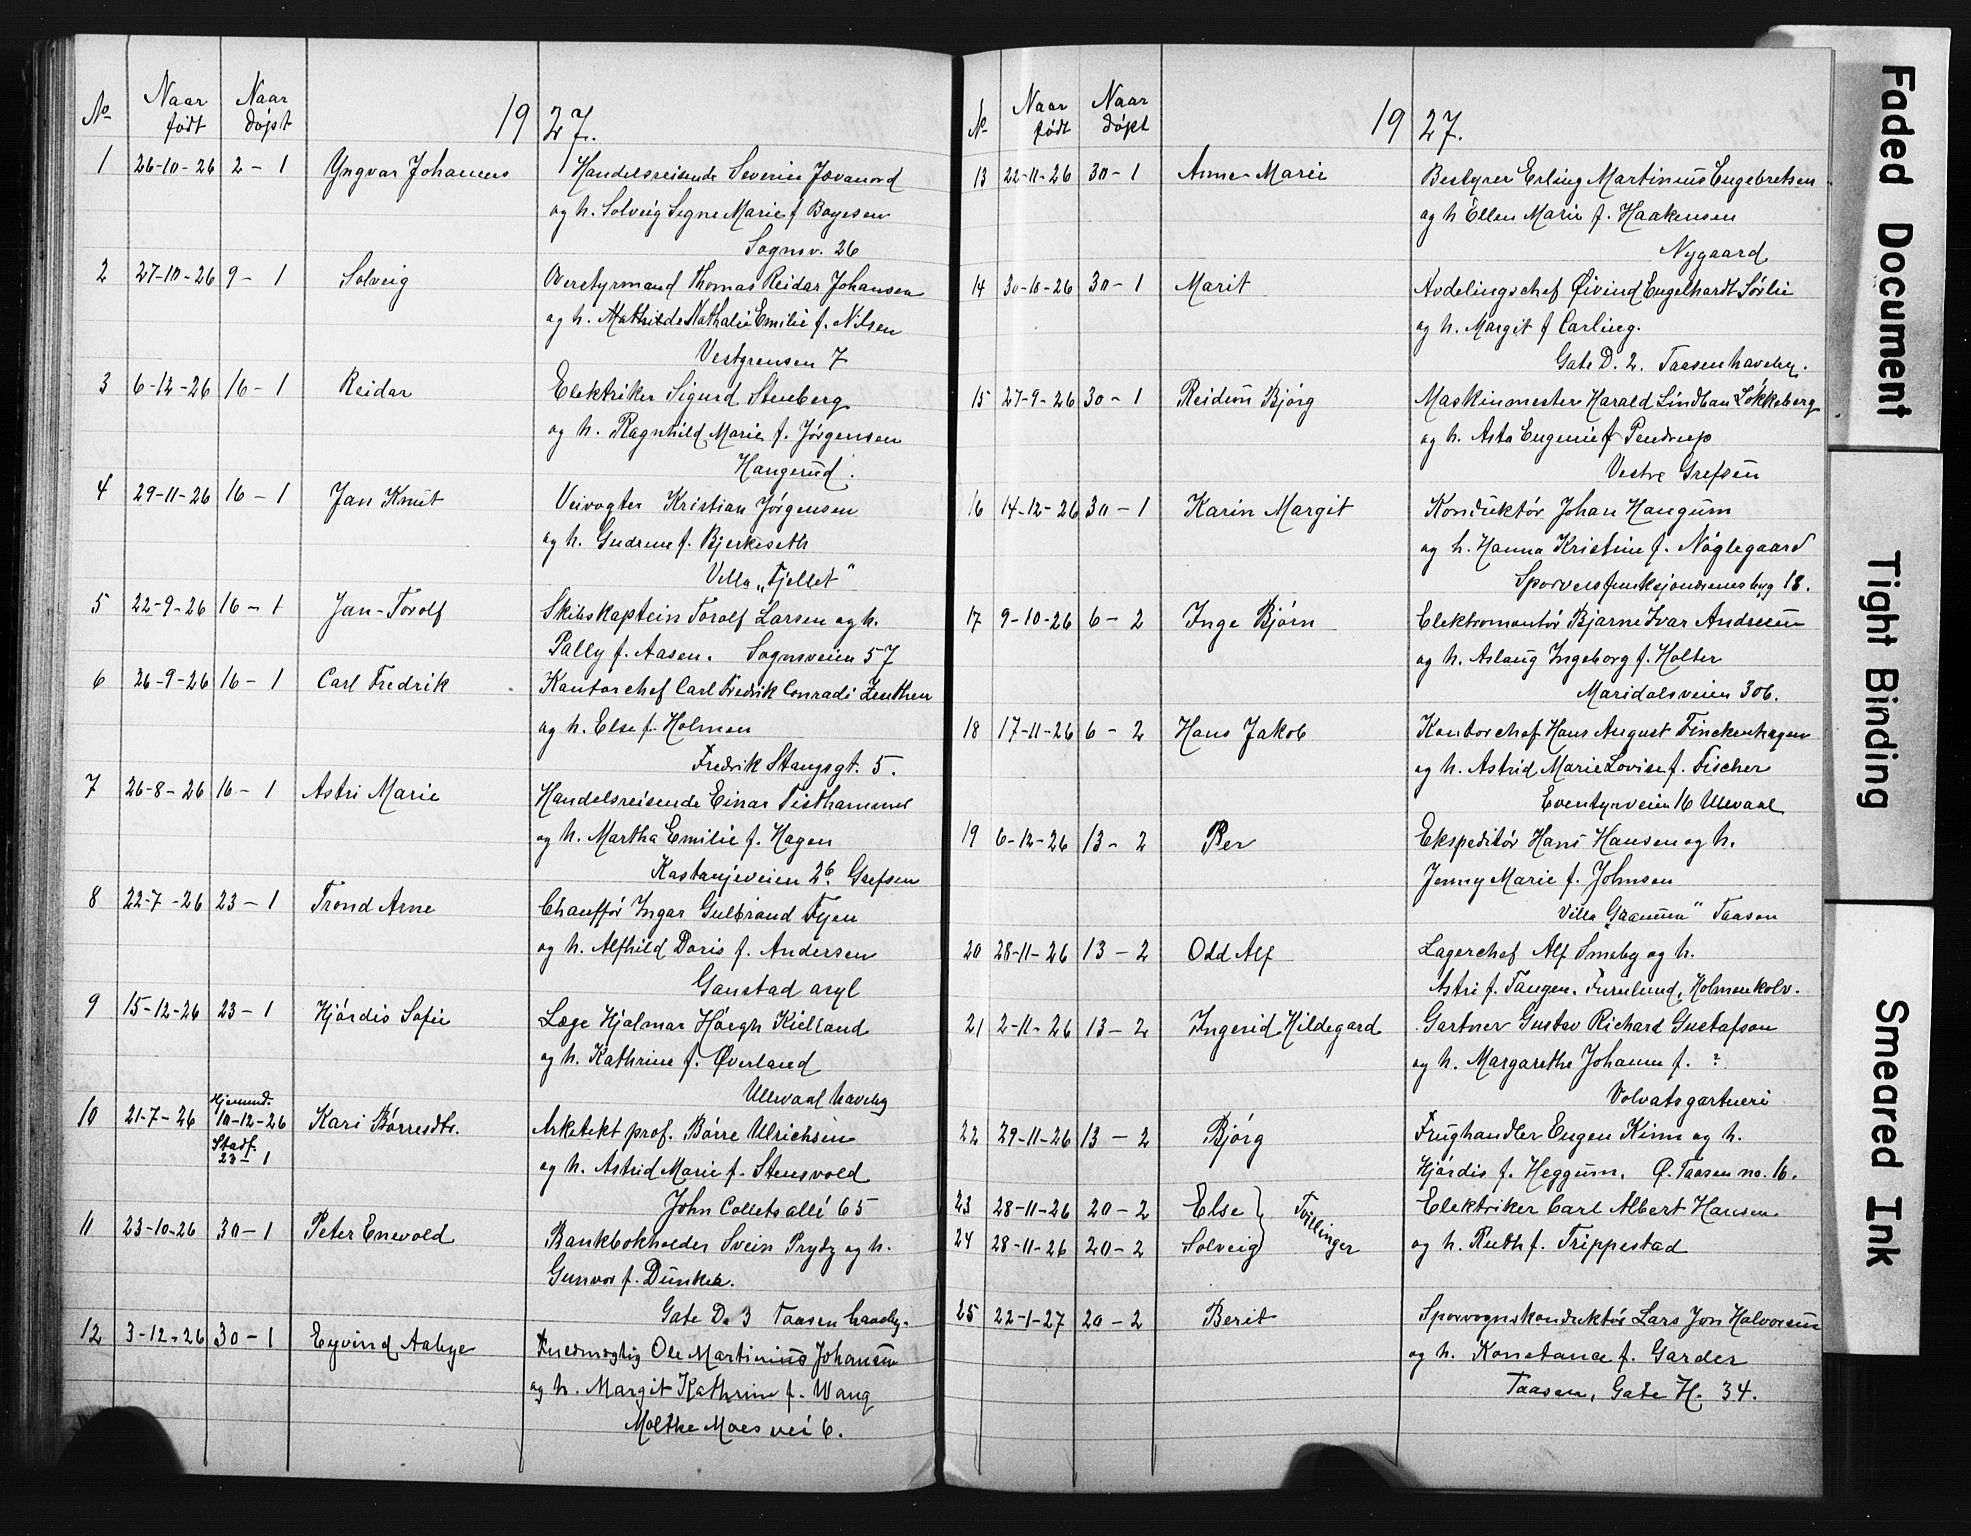 No Naar født Naar døpt 19 27.
1 26-10-26 2-1 Yngvar Johannes Handelsreisende Severin Jøvanord
og h. Solveig Signe Marie f Boyesen
Sognsv. 26
2 27-10-26 9-1 Solveig Overstyrmand Thomas Reidar Johansen
og h. Mathilde Nathalie Emilie f. Nilsen
Vestgrensen 7
3 6-12-26 16-1 Reidar Elektriker Sigurd Stenberg
og h. Ragnhild Marie f. Jørgensen
Haugerud.
4 29-11-26 16-1 Jan Knut Veivogter Kristian Jørgensen
og h. Gudrun f. Bjerkeseth
Villa „Fjellet"
5 22-9-26 16-1 Jan-Torolf Skibskaptein Torolf Larsen og h.
Pally f. Aasen. Sognsveien 57
6 26-9-26 16-1 Carl Fredrik Kontorchef Carl Fredrik Conradi Zeuthen
og h. Else f. Holmen
Fredrik Stangsgt. 5.
7 26-8-26 16-1 Astri Marie Handelsreisende Einar Tisthammer
og h. Martha Emilie f. Hagen
Kastanjeveien 2b. Grefsen
8 22-7-26 23-1 Trond Arne Chauffør Ingar Gulbrand Tjen
og h. Alfhild Doris f. Andersen
Gaustad asyl
9 15-12-26 23-1 Hjørdis Sofie Læge Hjalmar Høegh Kielland
og h. Kathrine f. Øverland
Ullevaal haveby
10 21-7-26 Hjemmd. 10-12-26 Stadf. 23-1 Kari Børresdtr. Arkitekt prof. Børre Ulrichsen
og h. Astrid Marie f. Stensvold
John Colletsallé 65
11 23-10-26 30-1 Peter Enevold Bankbokholder Svein Prydz og h.
Gunvor f. Dunker.
Gate D. 3 Taasen haveby.
12 3-12-26 30-1 Eyvind Aabye Fuldmægtig Ole Martinius Johansen
og h. Margit Kathrine f. Wang
Moltke Moes vei 6.
No Naar født Naar døpt 19 27.
13 22-11-26 30-1 Anne-Marie Bestyrer Erling Martinius Engebretsen
og h Ellen Marie f. Haakensen
Nygaard
14 30-10-26 30-1 Marit Avdelingschef Øivind Engelhardt Sørlie
og h. Margit f Carling.
Gate D. 2. Taasen haveby.
15 27-9-26 30-1 Reidun Bjørg Maskinmester Harald Lindban Løkkeberg
og h. Asta Eugenie f Pendrup
Vestre Grefsen
16 14-12-26 30-1 Karin Margit Konduktør Johan Haugum
og h. Hanna Kristine f. Nøglegaard
Sporveisfunksjonærenesbyg 18.
17 9-10-26 6-2 Inge Bjørn Elektromontør Bjarne Ivar Andresen
og h. Aslaug Ingeborg f. Holter
Maridalsveien 306.
18 17-11-26 6-2 Hans Jakob Kontorchef Hans August Finckenhagen
og h. Astrid Marie Lovise f. Fischer
Eventyrveien 16 Ullevaal
19 6-12-26 13-2 Per Ekspeditør Hans Hansen og h.
Jenny Marie f. Johnsen
Villa „Granum" Taasen
20 28-11-26 13-2 Odd Alf Lagerchef Alf Smeby og h.
Astri f. Tangen. Furulund, Holmenkolv.
21 2-11-26 13-2 Ingerid Hildegard Gartner Gustav Richard Gustafson
og h. Margarethe Johanne f. ?
Volvatsgartneri
22 29-11-26 13-2 Bjørg Frugthandler Eugen Kinn og h.
Hjørdis f. Heggum. Ø. Taasen no. 16.
23 28-11-26 20-2 Else } Tvillinger Elektriker Carl Albert Hansen
24 28-11-26 20-2 Solveig og h. Ruth f. Trippestad
25 22-1-27 20-2 Berit Sporvognskonduktør Lars Jon Halvorsen
og h. Konstance f. Garder
Taasen, Gate H. 34.
Faded Document
Tight Binding
Smeared Ink